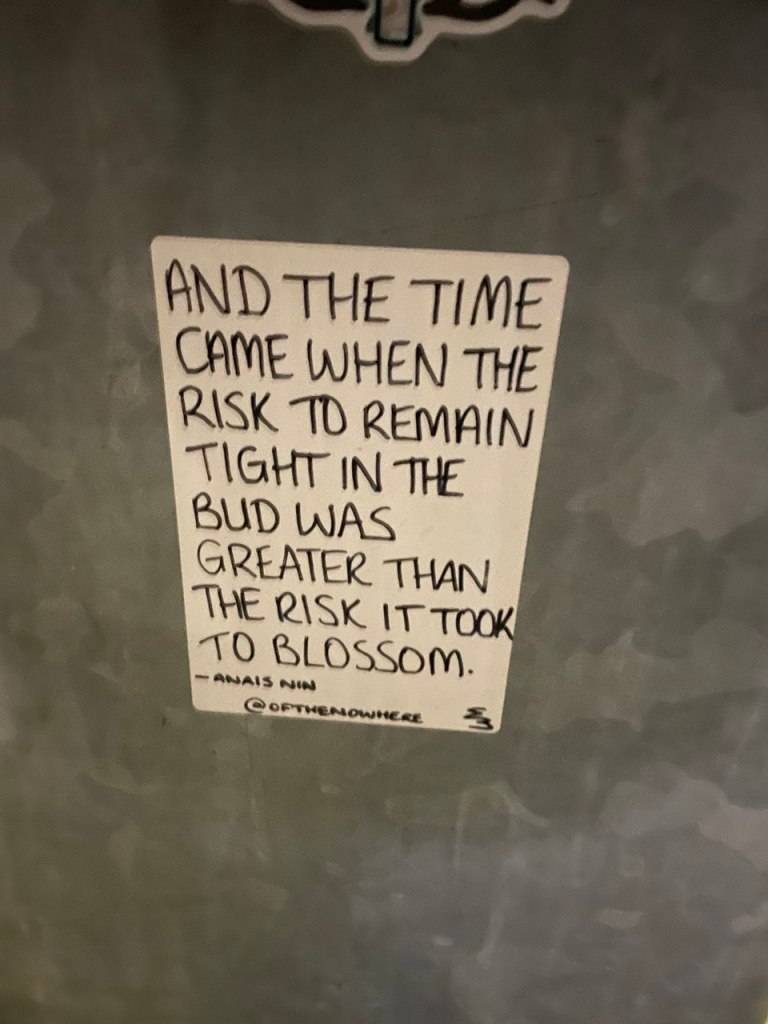 AND THE TIME
CAME WHEN THE
RISK TO REMAIN
TIGHT IN THE
BUD WAS
GREATER THAN
THE RISK IT TOOK
TO BLOSSOM.
- ANAIS NIN
@OFTHENOWHERE